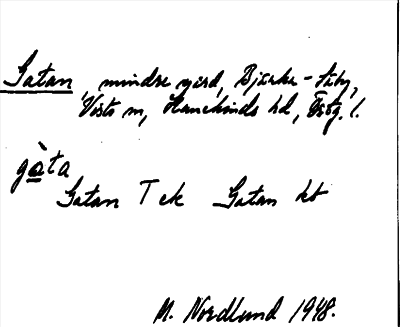 Gatan, mindre gård, Bjärka-Säby,
Vists sn, Hanekinds hd, Östg. l.
gàta
Gatan T ek Gatan kb
M. Nordlund 1948.